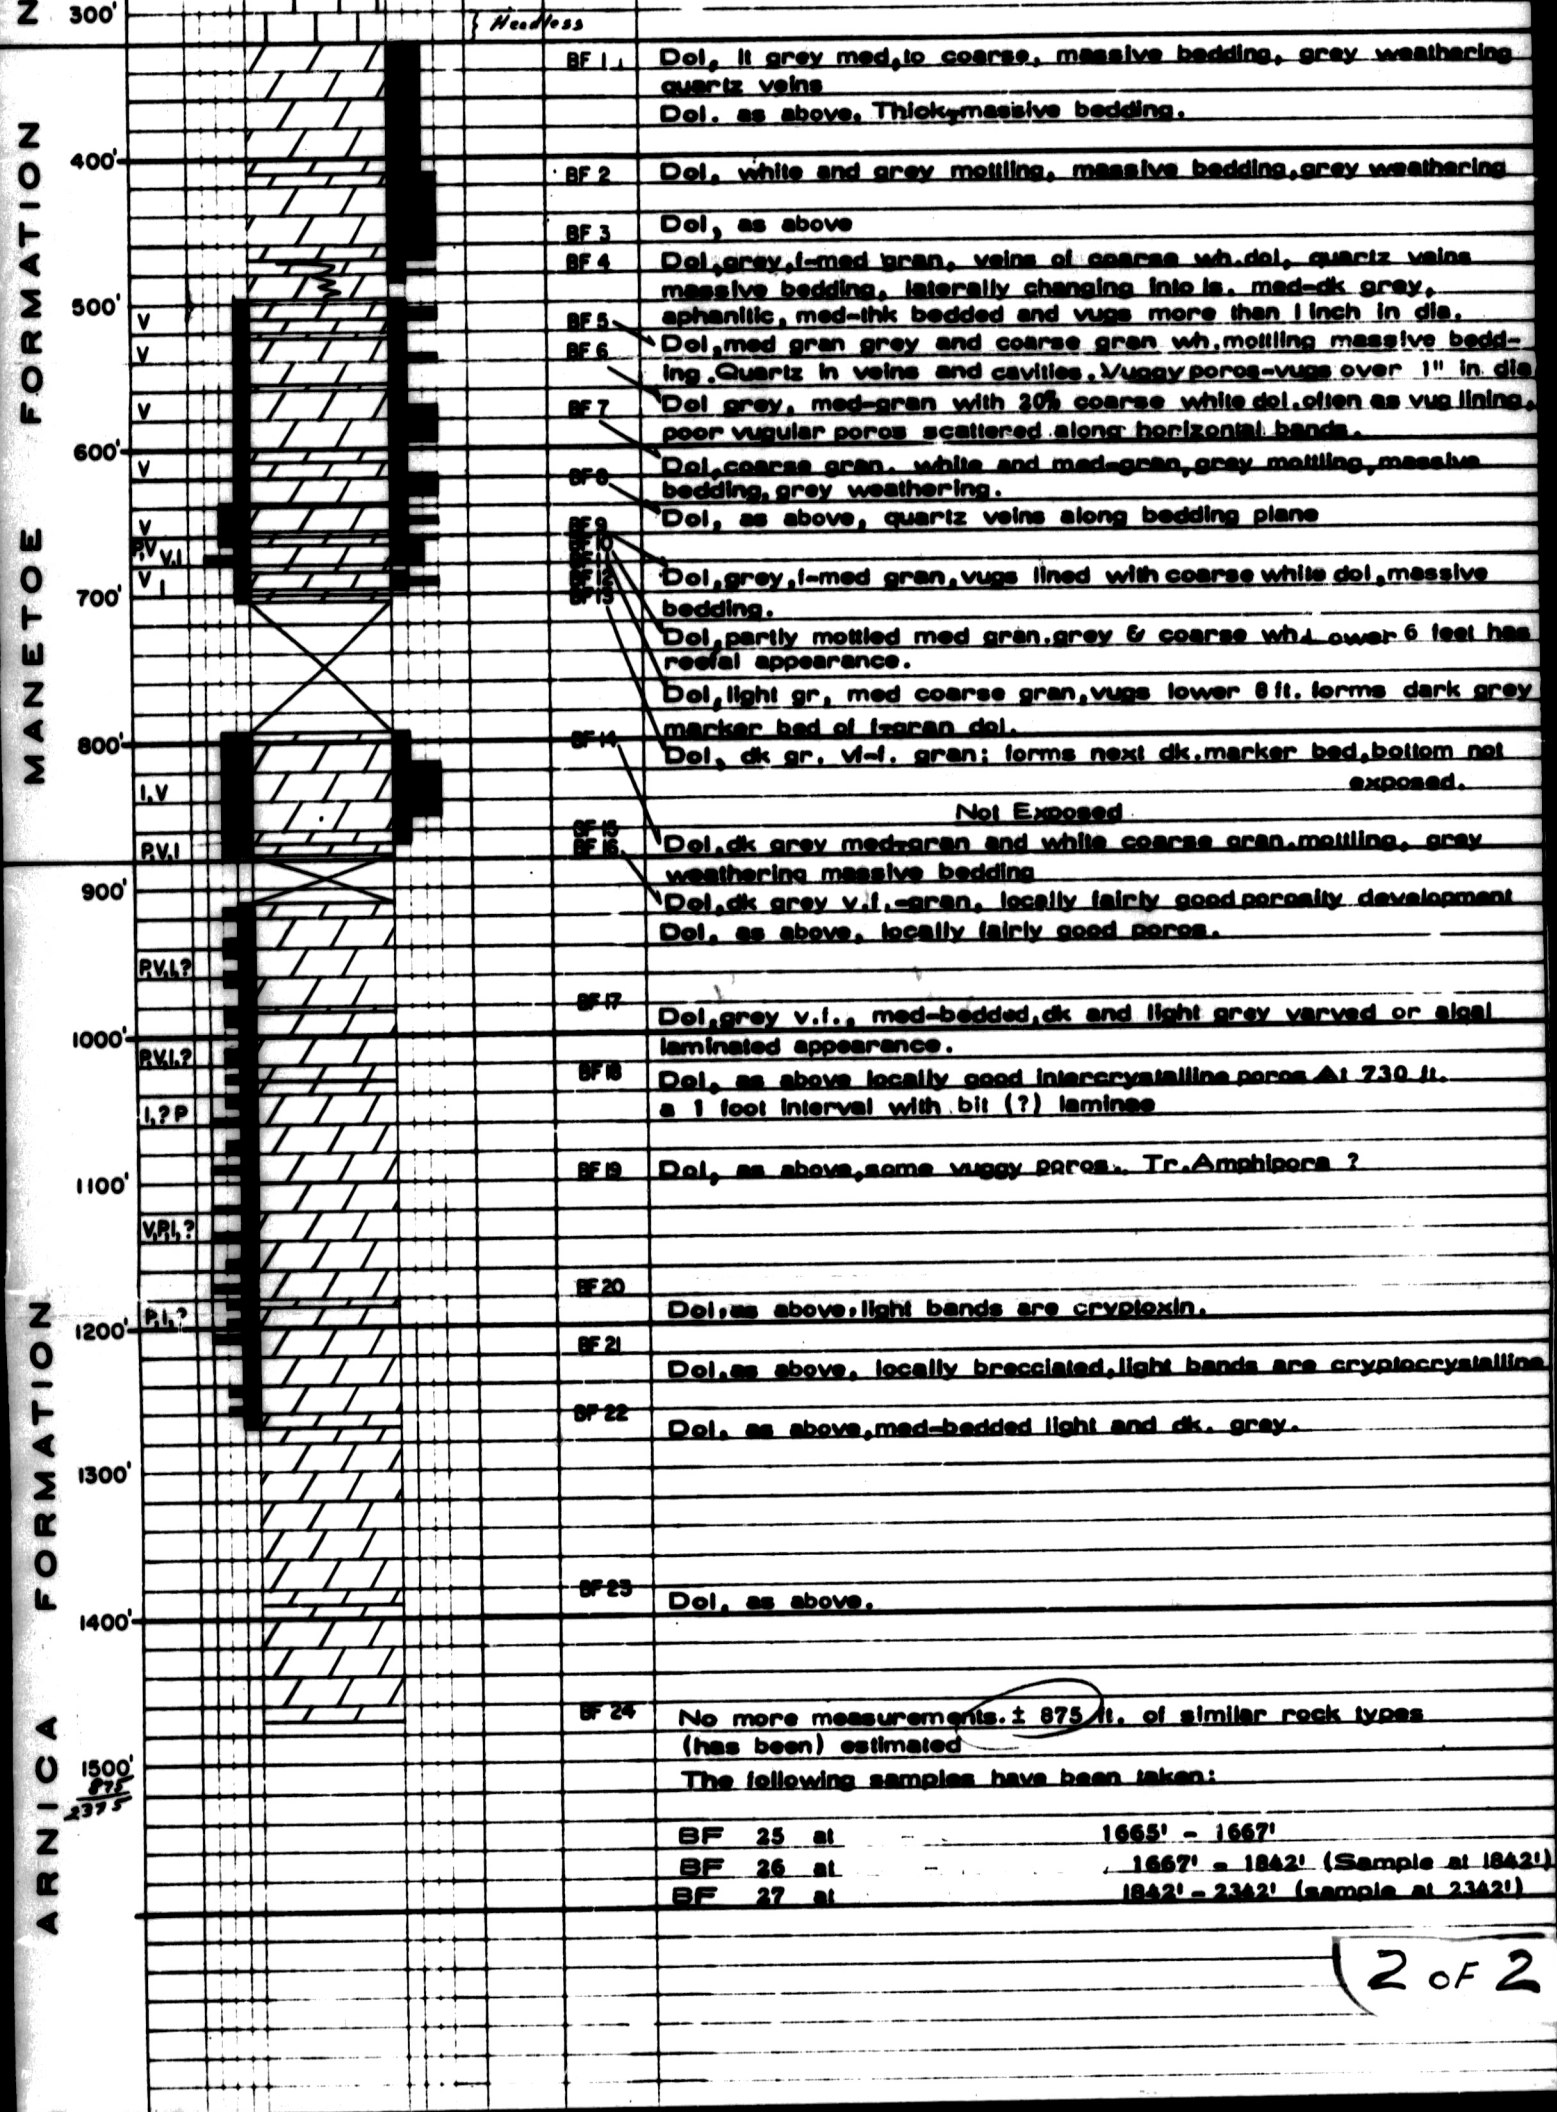 N
300'
Headless
MANETOE FORMATION
BF 1. Dol, lt grey med, to coarse, massive bedding, grey weathering
quartz veins
Dol. as above. Thick-massive bedding.
400'
BF 2 Dol, white and grey mottling, massive bedding, grey weathering
BF 3 Dol, as above
BF 4 Dol, grey, f-med gran, veins of coarse wh. dol, quartz veins
massive bedding, laterally changing into ls. med-dk grey,
500'
aphanitic, med-thk bedded and vugs more than 1 inch in dia.
V
BF 5 Dol, med gran grey and coarse gran wh. mottling massive bedd-
ing. Quartz in veins and cavities. Vuggy poros-vugs over 1" in dia
V
BF 6 Dol grey, med-gran with 20% coarse white dol. often as vug lining,
poor vugular poros scattered along horizontal bands.
V
BF 7 Dol, coarse gran. white and med-gran, grey mottling, massive
bedding, grey weathering.
600'
V
BF 8 Dol, as above, quartz veins along bedding plane
V
BF 9 Dol, grey, f-med gran, vugs lined with coarse white dol, massive
bedding.
P,V V.I
BF 10 Dol, partly mottled med gran. grey & coarse wh. Lower 6 feet has
reefal appearance.
V I
BF 12 Dol, light gr, med coarse gran, vugs lower 8 ft. forms dark grey
marker bed of f-gran dol.
700'
BF 13 Dol, dk gr. vf-f. gran; forms next dk. marker bed, bottom not
exposed.
Not Exposed
800'
BF 14 Dol, dk grey med-gran and white coarse gran. mottling, grey
weathering massive bedding
I.V
BF 15
P.V.I
BF 16. Dol, dk grey v.f.-gran, locally fairly good porosity development
Dol, as above, locally fairly good poros.
ARNICA FORMATION
900'
P.V.I.?
BF 17 Dol, grey v.f., med-bedded, dk and light grey varved or algal
laminated appearance.
1000'
P.V.I.?
BF 18 Dol, as above locally good intercrystalline poros At 730 ft.
a 1 foot interval with bit (?) laminae
I,? P
BF 19 Dol, as above, some vuggy poros. Tr. Amphipora ?
1100'
V,P,I,?
BF 20 Dol. as above, light bands are cryptoxln.
P,I,?
1200'
BF 21 Dol. as above, locally brecciated, light bands are cryptocrystalline
BF 22 Dol. as above, med-bedded light and dk. grey.
1300'
BF 23 Dol, as above.
1400'
BF 24 No more measurements. ± 875 ft. of similar rock types
(has been) estimated
1500'
875
2375
The following samples have been taken:
BF 25 at - 1665' - 1667'
BF 26 at 1667' - 1842' (Sample at 1842')
BF 27 at 1842' - 2342' (sample at 2342')
2 OF 2